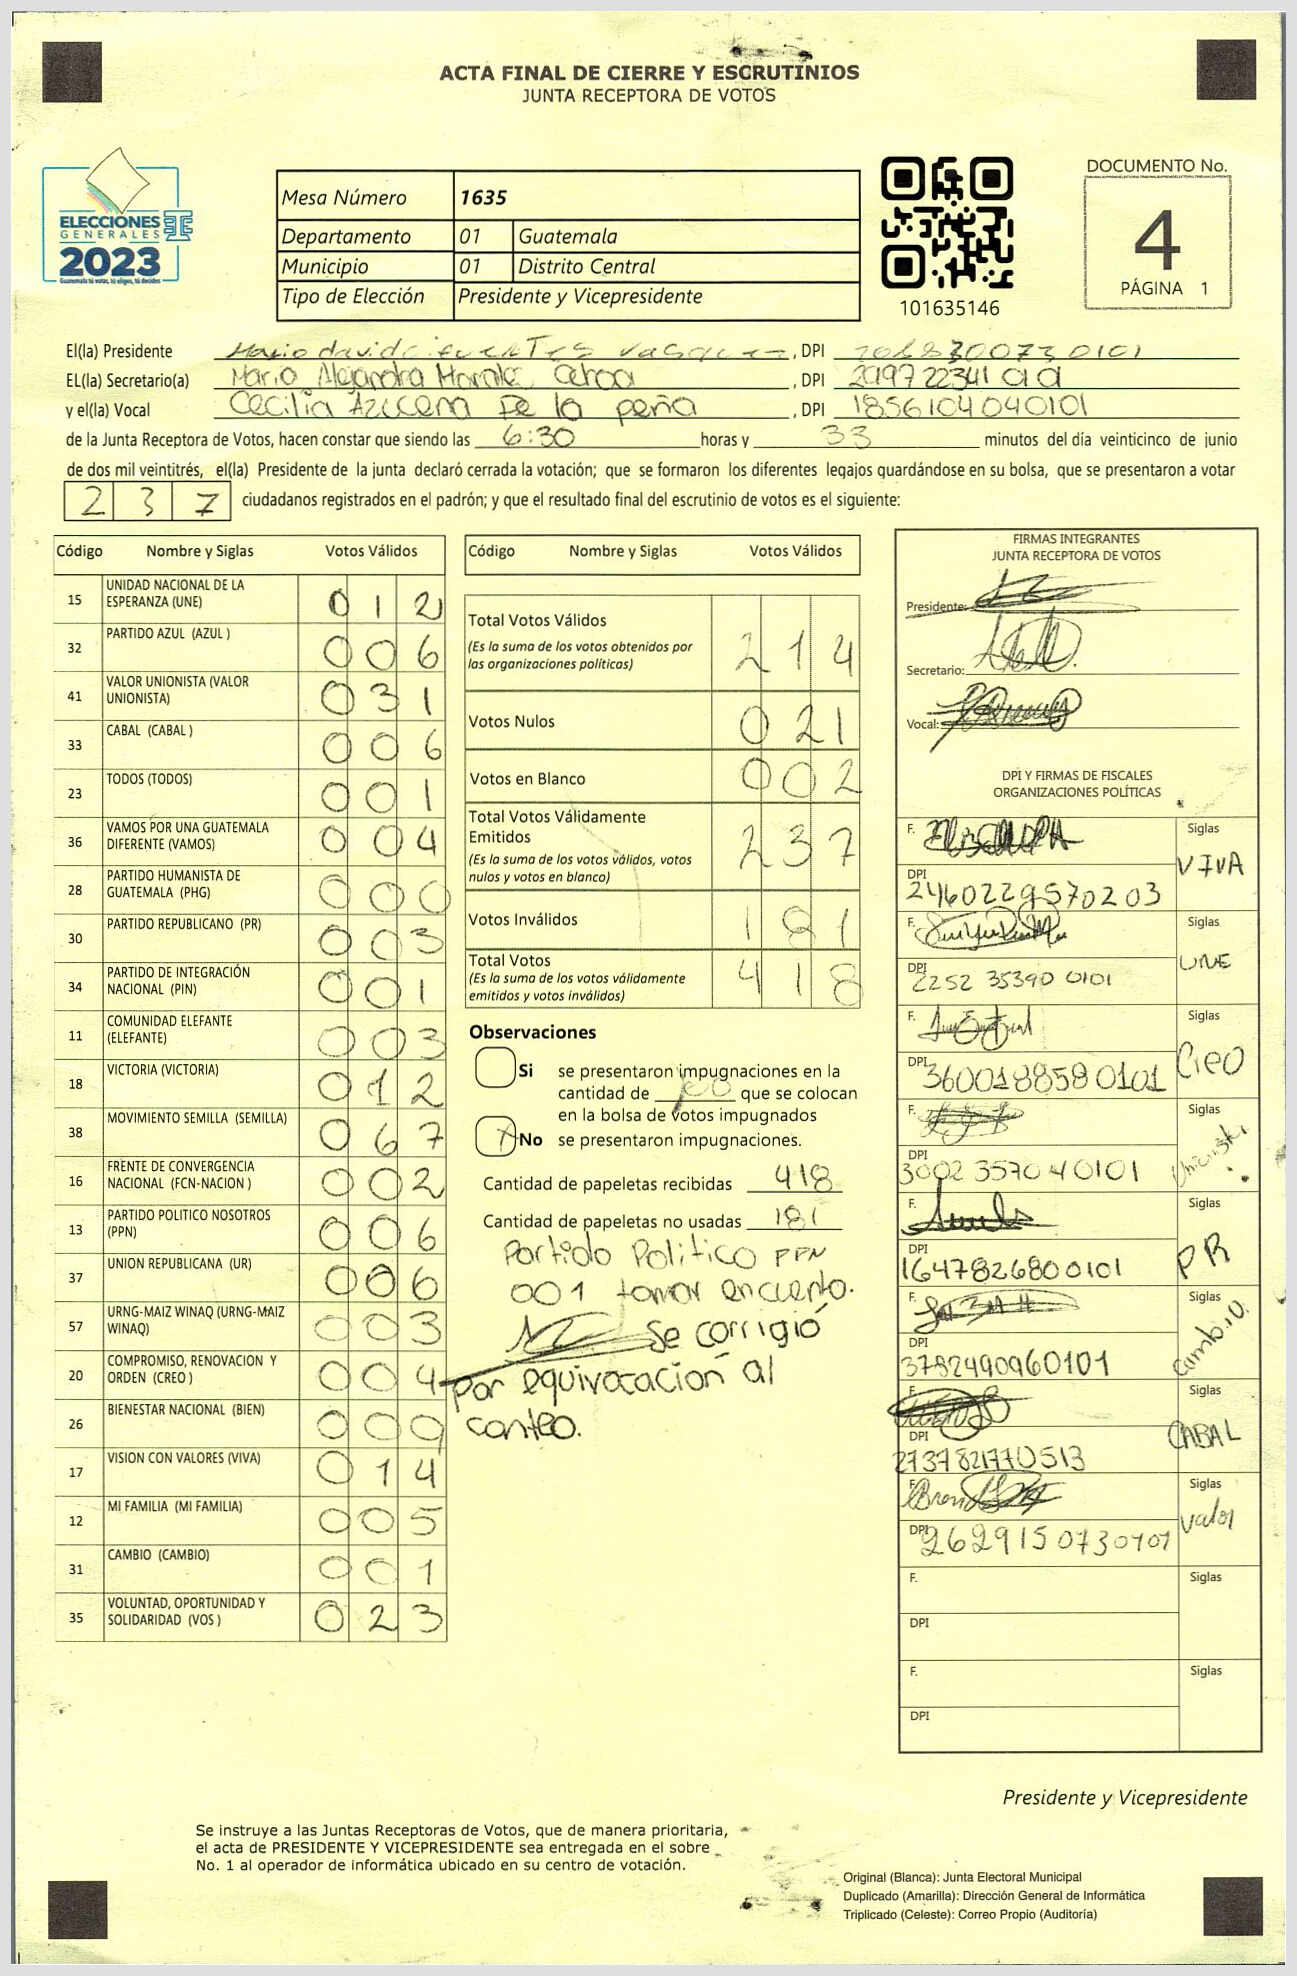 ACTA FINAL DE CIERRE Y ESCRUTINIOS
JUNTA RECEPTORA DE VOTOS
ELECCIONES
GENERALES
2023
Guatemala tú votas, tú eliges, tú decides
Mesa Número 1635
Departamento 01 Guatemala
Municipio 01 Distrito Central
Tipo de Elección Presidente y Vicepresidente
101635146
DOCUMENTO No.
4
PÁGINA 1
El(la) Presidente Mario david Fuentes Vasquez, DPI
EL(la) Secretario(a) Maria Alejandra Morales Ochoa, DPI 2997 22341 0101
y el(la) Vocal Cecilia Azucena De la peña, DPI 1856104040101
de la Junta Receptora de Votos, hacen constar que siendo las 6:30 horas y 33 minutos del día veinticinco de junio
de dos mil veintitrés, el(la) Presidente de la junta declaró cerrada la votación; que se formaron los diferentes legajos quardándose en su bolsa, que se presentaron a votar
2 3 7 ciudadanos registrados en el padrón; y que el resultado final del escrutinio de votos es el siguiente:
Código Nombre y Siglas Votos Válidos
15 UNIDAD NACIONAL DE LA ESPERANZA (UNE) 0 1 2
32 PARTIDO AZUL (AZUL ) 0 0 6
41 VALOR UNIONISTA (VALOR UNIONISTA) 0 3 1
33 CABAL (CABAL ) 0 0 6
23 TODOS (TODOS) 0 0 1
36 VAMOS POR UNA GUATEMALA DIFERENTE (VAMOS) 0 0 4
28 PARTIDO HUMANISTA DE GUATEMALA (PHG) 0 0 0
30 PARTIDO REPUBLICANO (PR) 0 0 3
34 PARTIDO DE INTEGRACIÓN NACIONAL (PIN) 0 0 1
11 COMUNIDAD ELEFANTE (ELEFANTE) 0 0 3
18 VICTORIA (VICTORIA) 0 1 2
38 MOVIMIENTO SEMILLA (SEMILLA) 0 6 7
16 FRENTE DE CONVERGENCIA NACIONAL (FCN-NACION ) 0 0 2
13 PARTIDO POLITICO NOSOTROS (PPN) 0 0 6
37 UNION REPUBLICANA (UR) 0 0 6
57 URNG-MAIZ WINAQ (URNG-MAIZ WINAQ) 0 0 3
20 COMPROMISO, RENOVACION Y ORDEN (CREO ) 0 0 4
26 BIENESTAR NACIONAL (BIEN) 0 0 9
17 VISION CON VALORES (VIVA) 0 1 4
12 MI FAMILIA (MI FAMILIA) 0 0 5
31 CAMBIO (CAMBIO) 0 0 1
35 VOLUNTAD, OPORTUNIDAD Y SOLIDARIDAD (VOS ) 0 2 3
Código Nombre y Siglas Votos Válidos
Total Votos Válidos 2 1 4
(Es la suma de los votos obtenidos por
las organizaciones políticas)
Votos Nulos 0 2 1
Votos en Blanco 0 0 2
Total Votos Válidamente
Emitidos 2 3 7
(Es la suma de los votos válidos, votos
nulos y votos en blanco)
Votos Inválidos 1 8 1
Total Votos 4 1 8
(Es la suma de los votos válidamente
emitidos y votos inválidos)
Observaciones
Si se presentaron impugnaciones en la
cantidad de que se colocan
en la bolsa de votos impugnados
X No se presentaron impugnaciones.
Cantidad de papeletas recibidas 418
Cantidad de papeletas no usadas 181
Partido Politico PPN
001 tomar encuenta.
Se corrigió
por equivocación al
conteo.
FIRMAS INTEGRANTES
JUNTA RECEPTORA DE VOTOS
Presidente:
Secretario:
Vocal:
DPI Y FIRMAS DE FISCALES
ORGANIZACIONES POLÍTICAS
F. Siglas
VIVA
DPI
2460229570203
F. Siglas
UNE
DPI
2252 35390 0101
F. Siglas
Creo
DPI
3600188580101
F. Siglas
DPI
3002 357040101
F. Siglas
PR
DPI
1647826800101
F. Siglas
Cambio
DPI
3782490960101
F. Siglas
CABAL
DPI
2737821770513
F. Siglas
Valor
DPI
2629150730101
F. Siglas
DPI
F. Siglas
DPI
Presidente y Vicepresidente
Se instruye a las Juntas Receptoras de Votos, que de manera prioritaria,
el acta de PRESIDENTE Y VICEPRESIDENTE sea entregada en el sobre
No. 1 al operador de informática ubicado en su centro de votación.
Original (Blanca): Junta Electoral Municipal
Duplicado (Amarilla): Dirección General de Informática
Triplicado (Celeste): Correo Propio (Auditoría)